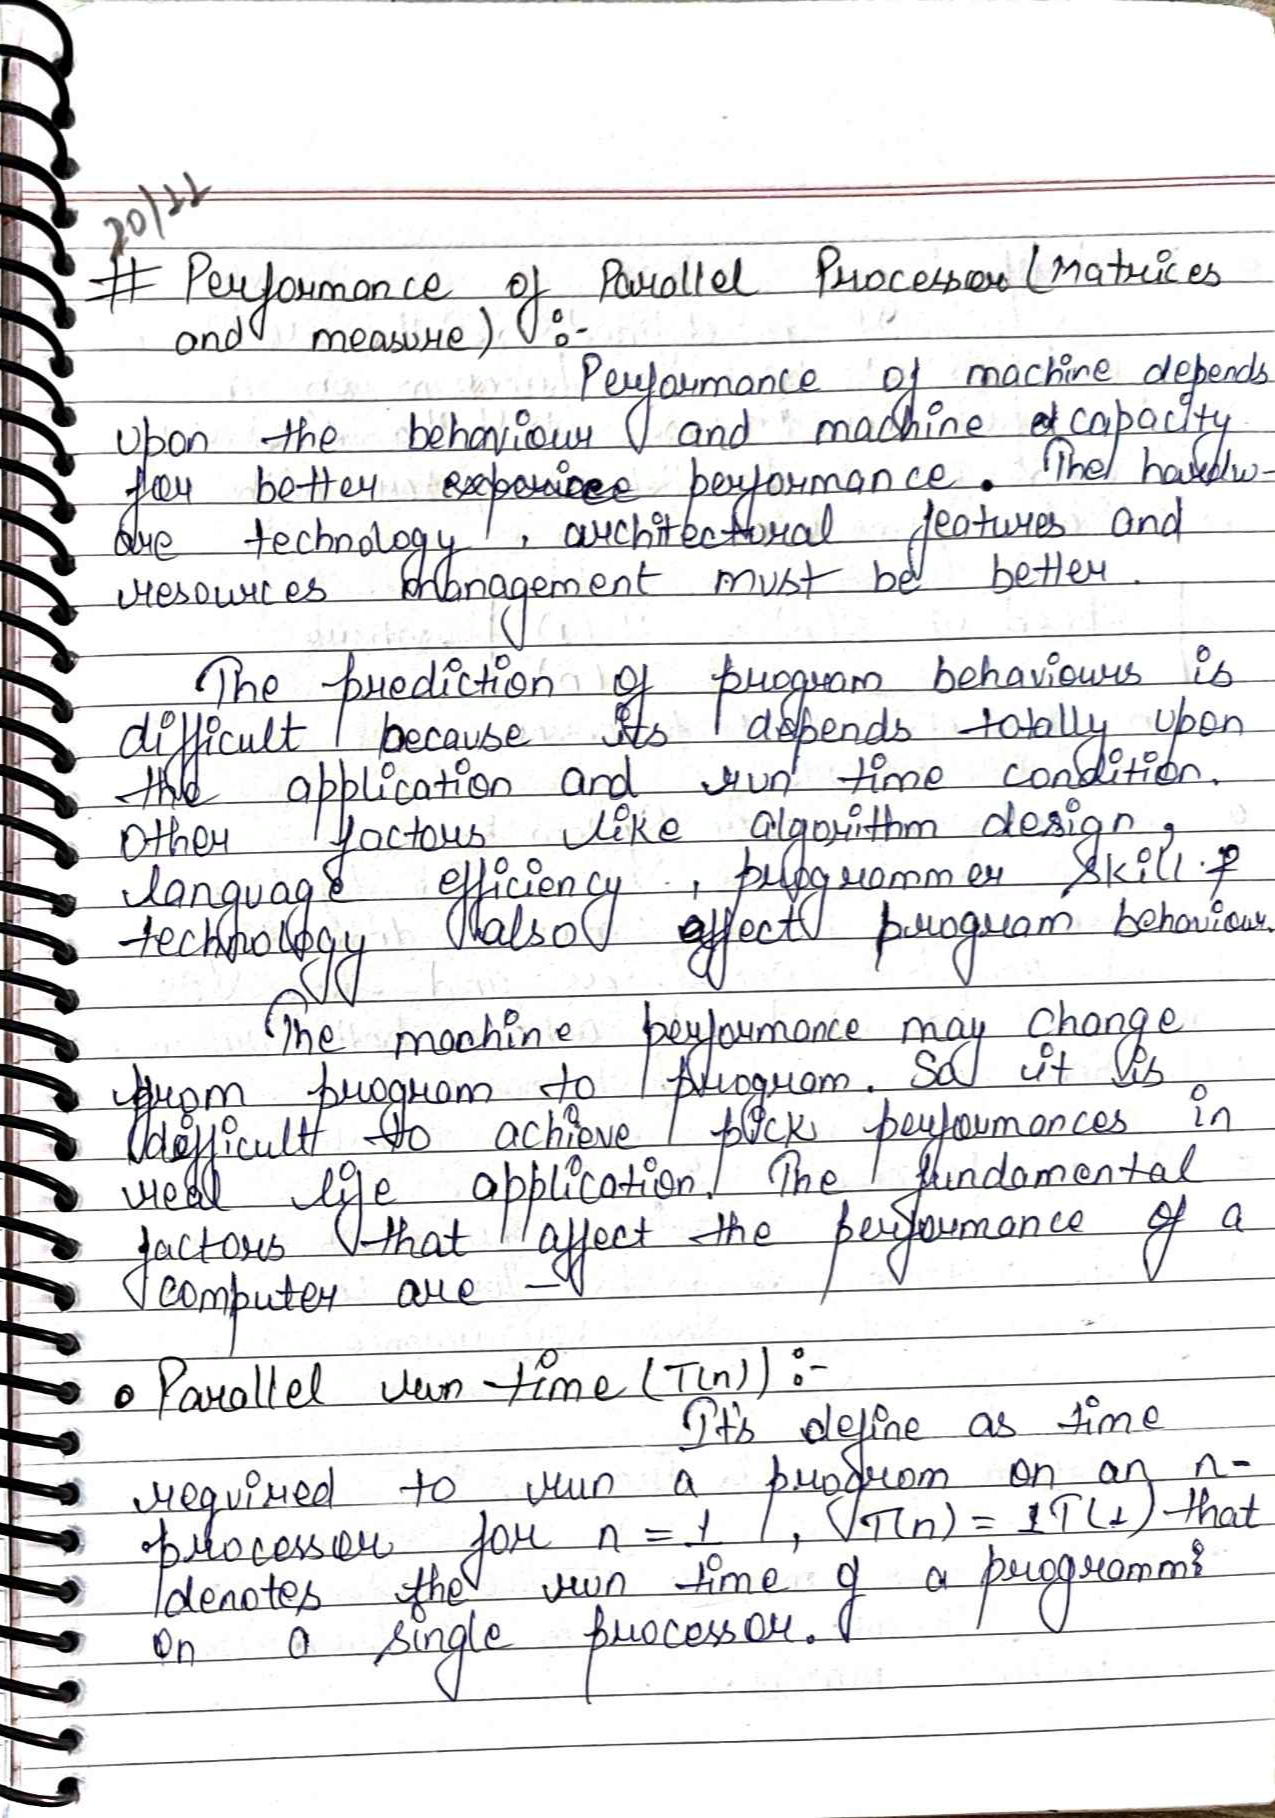 20/11
# Performance of Parallel Processor (Matrices
and measure) :-
Performance of machine depends
upon the behaviour and machine capacity
for better performance. The hardw-
are technology, architectural features and
resources management must be better.
The prediction of program behaviours is
difficult because its depends totally upon
the application and run time condition.
Other factors like algorithm design,
language efficiency, programmer skill &
technology also affect program behaviour.
The machine performance may change
from program to program. So it is
difficult to achieve pick performances in
real life application. The fundamental
factors that affect the performance of a
computer are —
• Parallel run time (T(n)) :-
It's define as time
required to run a program on an n-
processor for n = 1, T(n) = 1T(1) that
denotes the run time of a programm
on a single processor.